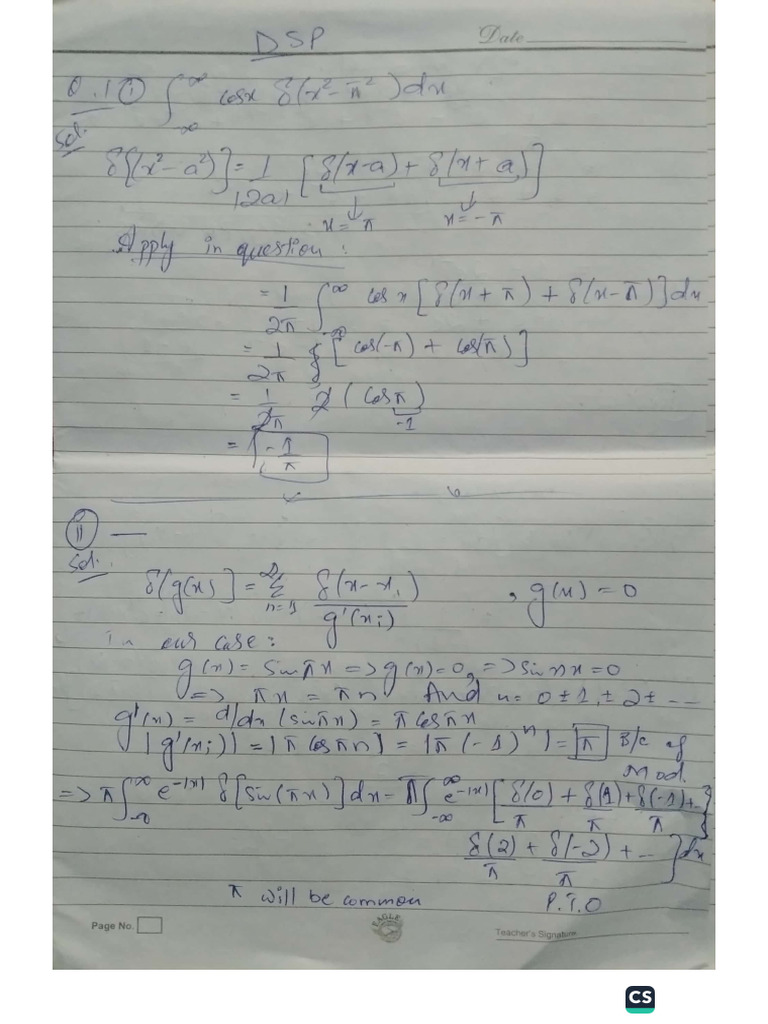 DSP
Date
Q.1 (i) ∫_{-∞}^{∞} cosx δ(x²-π²)dx
Sol.
δ{(x²-a²)} = 1/|2a| [δ(x-a) + δ(x+a)]
x=π x=-π
Apply in question:
= 1/2π ∫_{-∞}^{∞} cosx [δ(x+π) + δ(x-π)]dx
= 1/2π [cos(-π) + cos(π)]
= 1/2π 2(cosπ)
-1
= -1/π
(ii) —
Sol.
δ[g(x)] = Σ_{n=1}^{∞} δ(x-x_i)/g'(x_i) , g(x) = 0
in our case:
g(x) = sinπx => g(x)=0, => sinπx=0
=> πx = πn And n= 0 ±1, ±2 ± ---
g'(x) = d/dx (sinπx) = π cosπx
|g'(x_i)| = |π cosπn| = |π(-1)^n| = π B/c of
Mod.
=> π∫_{-∞}^{∞} e^{-|x|} δ[sin(πx)]dx = π∫_{-∞}^{∞} e^{-|x|} [δ(0)/π + δ(1)/π + δ(-1)/π + --
δ(2)/π + δ(-2)/π + -- ]dx
π will be common P.T.O
Page No.
EAGLE
Teacher's Signature
CS